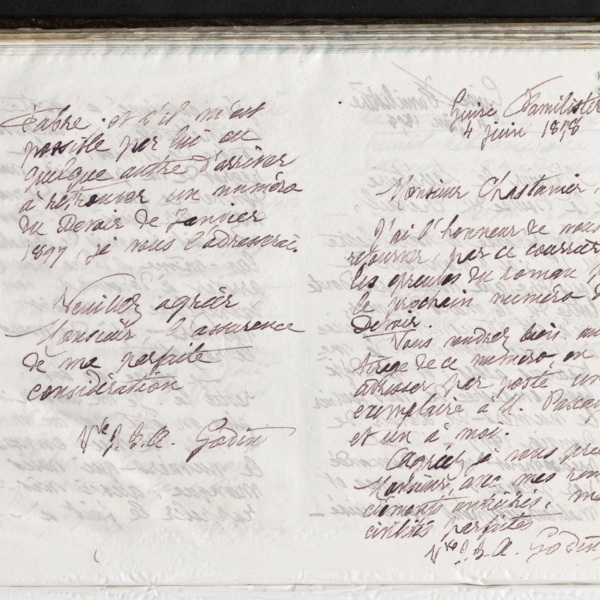 Fabre. et s'il m'est
possible par lui ou
quelque autre d'arriver
à retrouver un numéro
du Devoir de Janvier
1897, je vous l'adresserai.
Veuillez agréer
Monsieur, l'assurance
de ma parfaite
considération
Vve J. B. A. Godin
Guise Familistère
4 Juin 1898
Monsieur Chastanier
J'ai l'honneur de vous
retourner, par ce courrier
les épreuves du roman
le prochain numéro
Devoir.
Vous voudrez bien au
tirage de ce numéro, en
adresser par poste un
exemplaire à M.
et un à moi.
Agréez, je vous
Monsieur, avec mes
civilités parfaites
Vve J. B. A. Godin